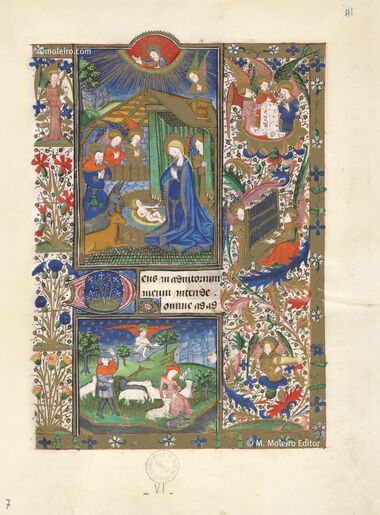 ©moleiro.com
41
eus in adiutorium
meum intende.
omine ad ad
© M. Moleiro Editor
VI
7